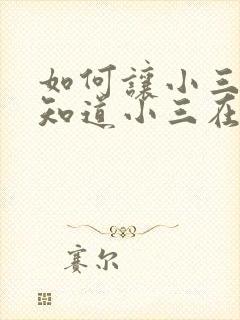 如何讓小三
知道小三在
賽尔